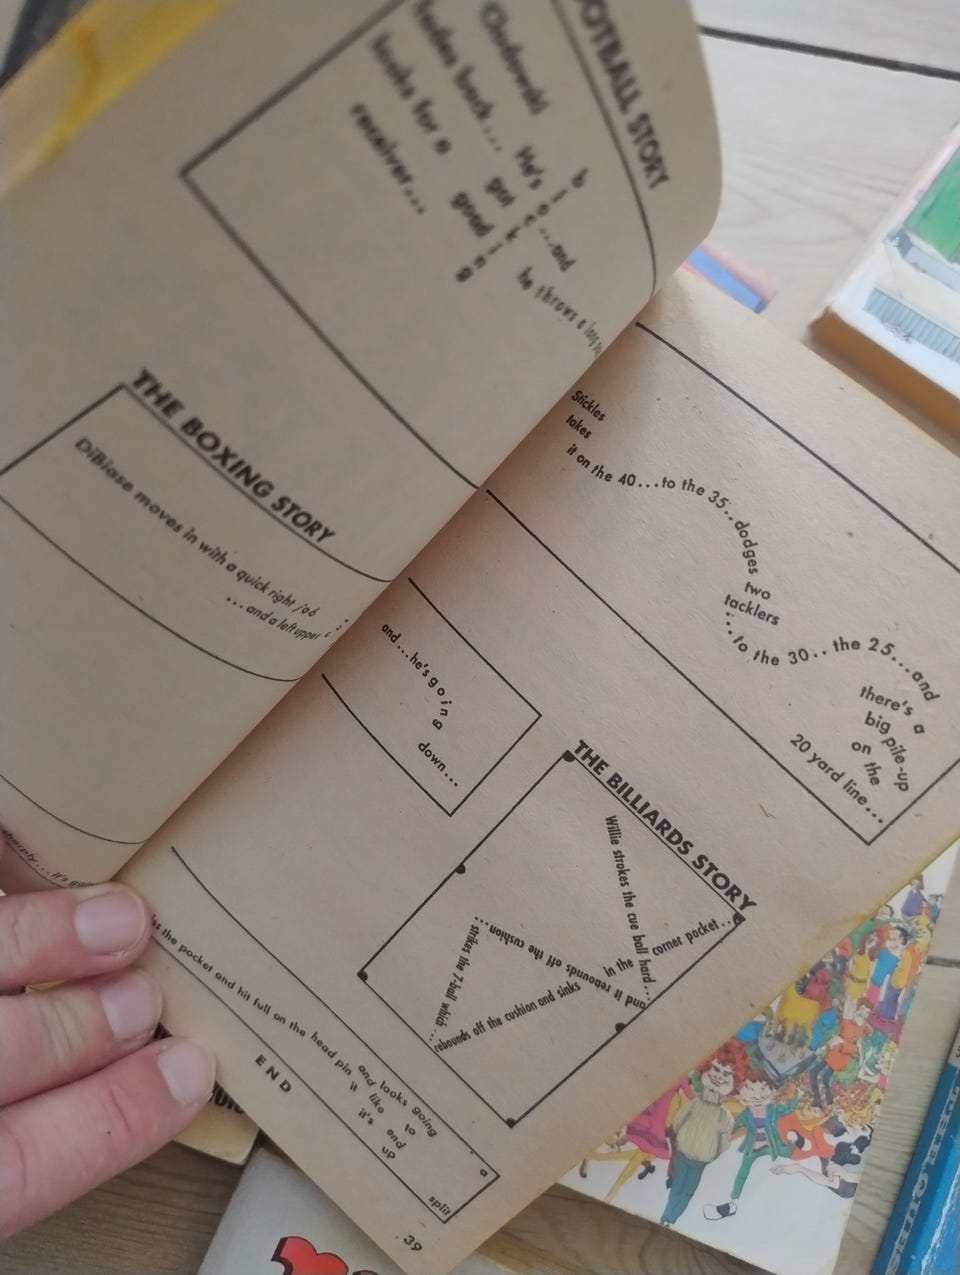 FOOTBALL STORY
Chidowski
fades back...
looks for a
receiver...
He's
got
good
blocking
...and
he throws a long
THE BOXING STORY
DiBiase moves in with a quick right job
...and a left upper
Stickles
takes
it on the 40...to the 35..dodges
two
tacklers
...to the 30.. the 25...and
there's a
big pile-up
on the
20 yard line...
and...he's going
down...
THE BILLIARDS STORY
Willie strokes the cue ball hard...
and it rebounds off the cushion...
strikes the 7-ball which...
rebounds off the cushion and sinks
in the corner pocket...
the pocket and hit full on the head pin
and looks going
it like to
it's end
up
a
split
END
39